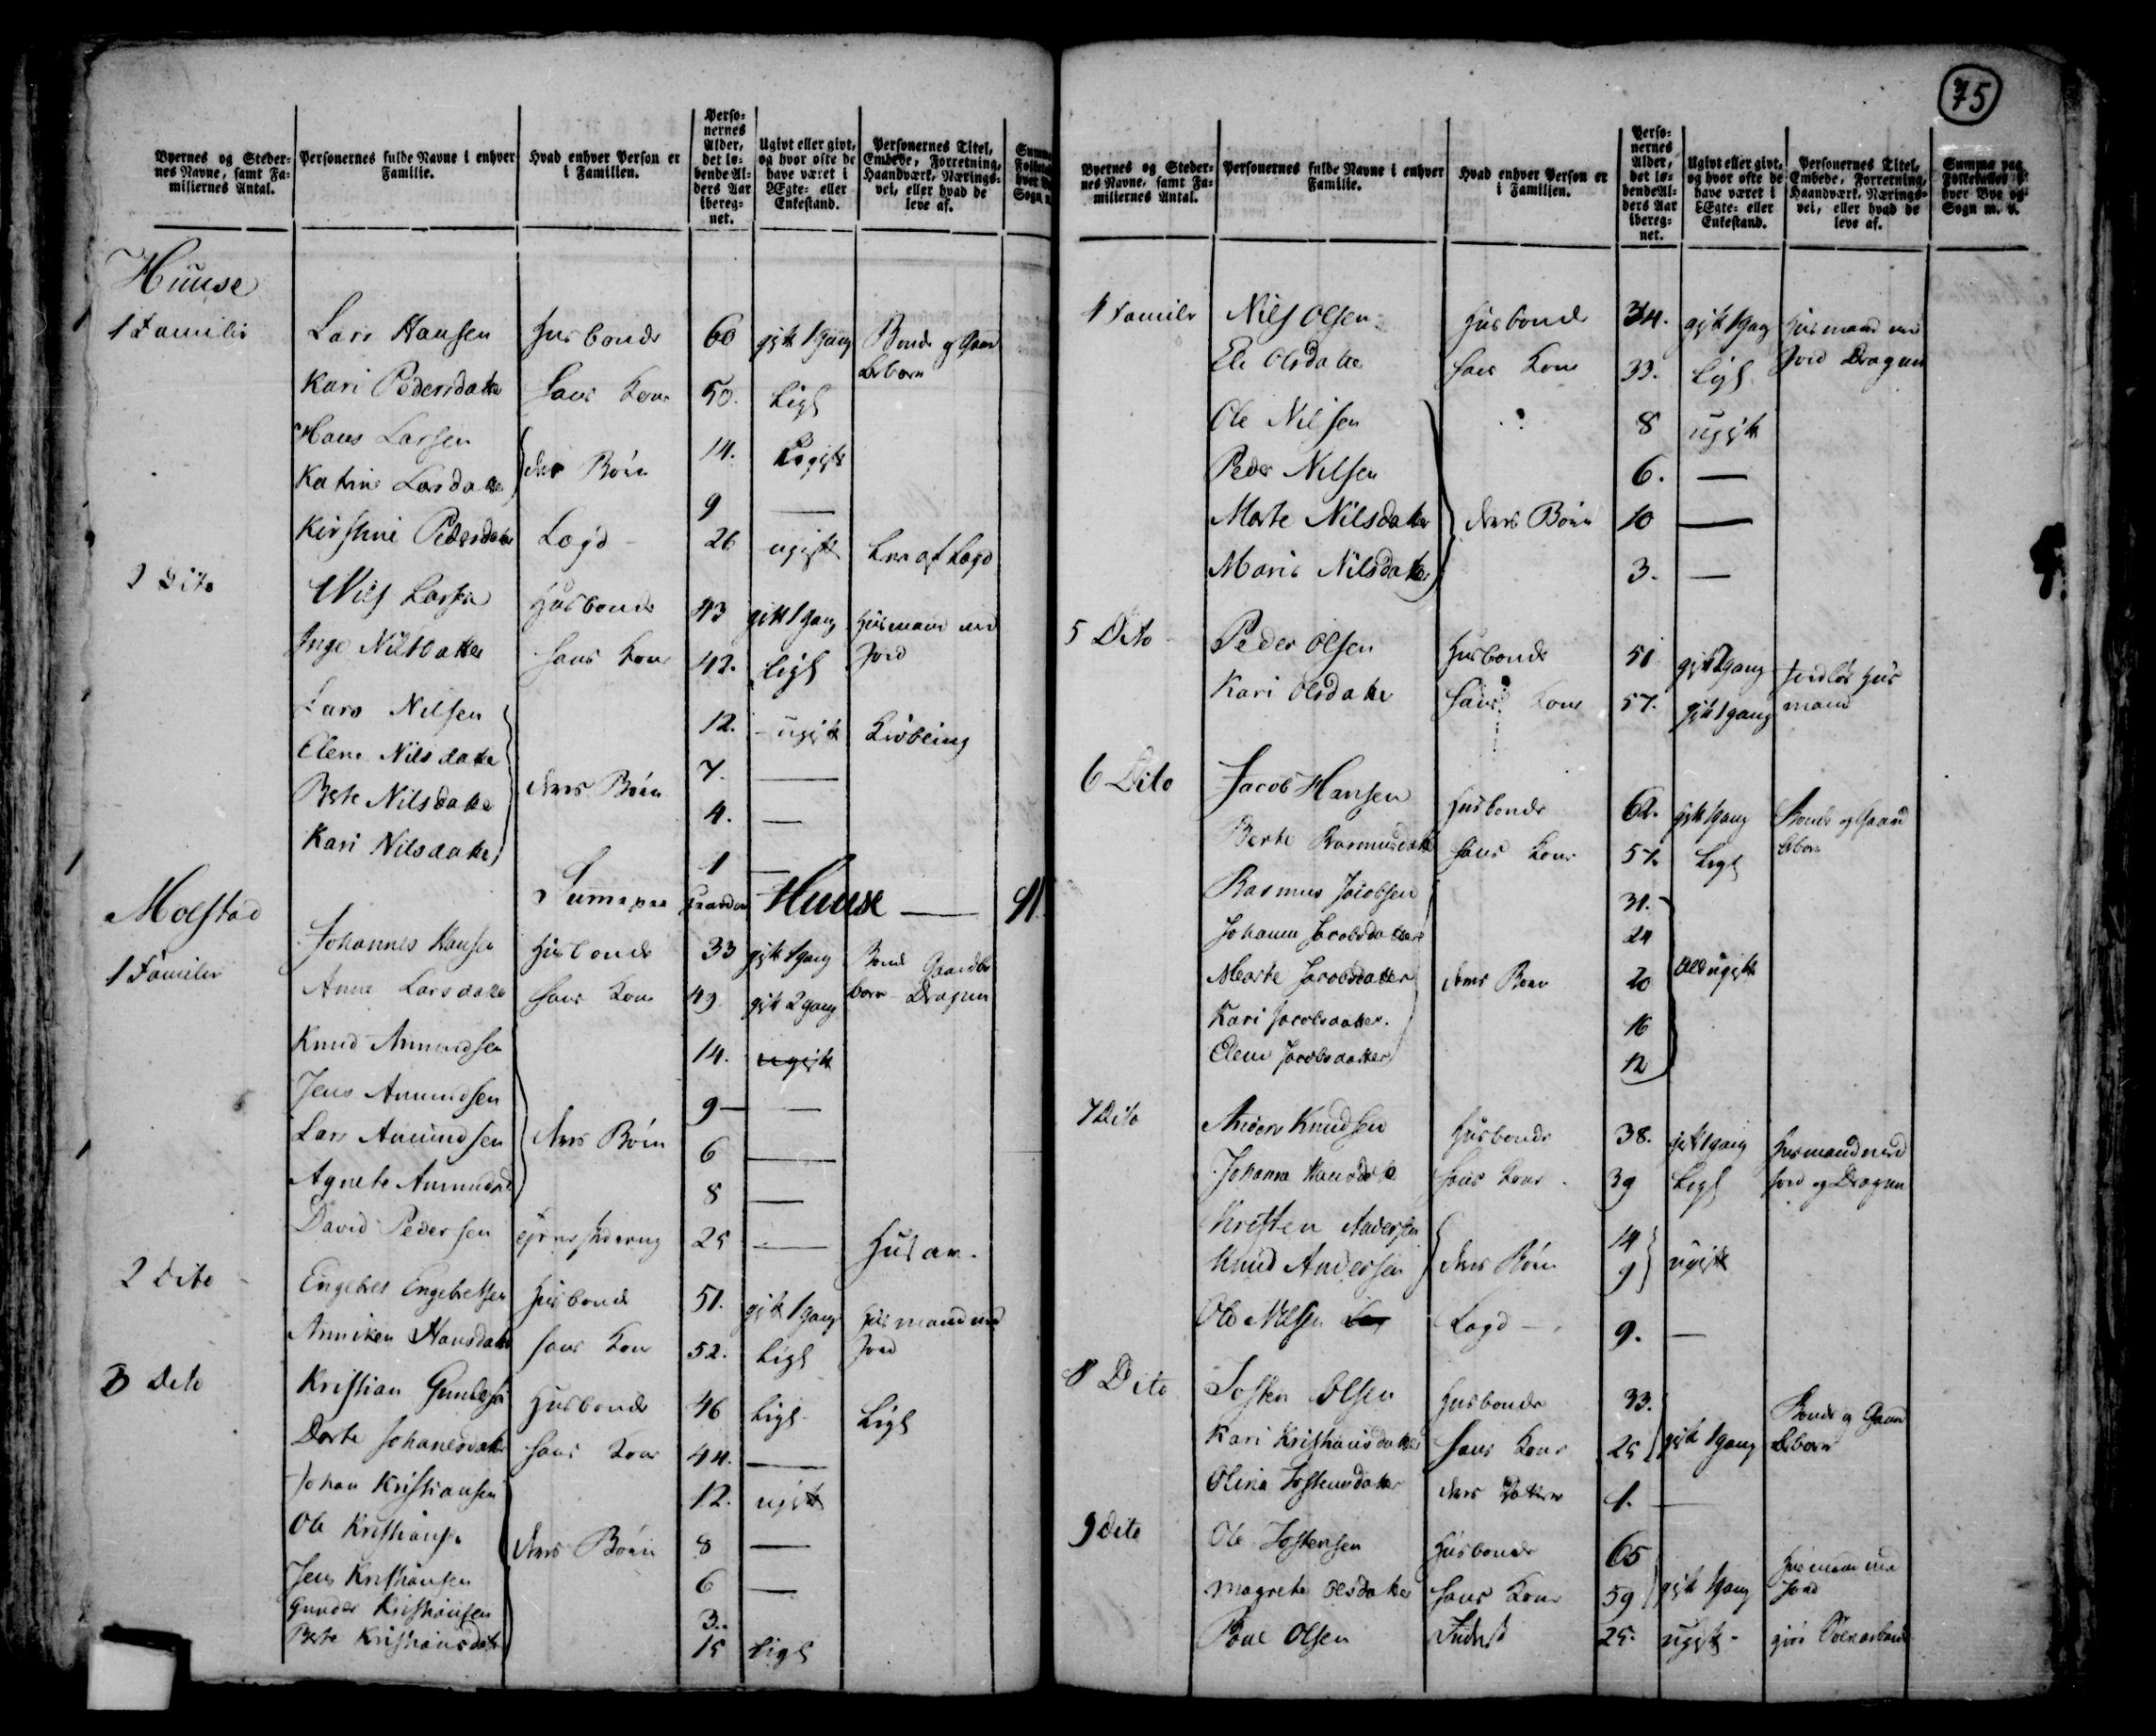 Byernes og Steder-nes Navne, samt Fa-miliernes Antal. Personernes fulde Navne i enhver Familie. Hvad enhver Person er i Familien. Perso-nernes Alder, det lø-bende Al-ders Aar ibereg-net. Ugivt eller givt, og hvor ofte de have været i Ægte- eller Enkestand. Personernes Titel, Embede, Forretning, Haandværk, Nærings-vei, eller hvad de leve af.
Huuse
1 Familie Lars Hansen Husbonde 60 gift 1 gang Bonde og Gaard
beboer
Kari Pedersdatter Hans Kone 50. Ligl
Hans Larsen 14. Ugift
Katrine Larsdatter deres Børn 9 —
Kirstine Pedersdatter Logd 26 ugift Lever af Lægd
2 Dito Nils Larsen Husbonde 43 gift 1 gang Husmand med
Inge Nilsdatter Hans Kone 42. Ligl Jord
Lars Nilsen 12. ugift
Elene Nilsdatter 7. —
Berte Nilsdatter deres Børn 4. —
Kari Nilsdatter 1 —
Suma paa Gaarden Huuse — 11
Molstad
1 Familie Johannes Hansen Husbonde 33 gift 1 gang Bonde Gaardbe
Anne Larsdatter Hans Kone 49. gift 2 gang boer Dragun
Knud Amundsen 14. ugift
Jens Amundsen 9 — —
Lars Amundsen deres Børn 6 —
Agnete Amundsd 8 —
David Pedersen 25 — Husar.
2 Dito Engebret Engebretsen Husbonde 51. gift 1 gang Husmand med
Anniken Hansdatter Hans Kone 52. Ligl Jord
3 Dito Kristian Gundersen Husbonde 46 Ligl Ligl
Dorte Johanesdatter Hans Kone 44. —
Johan Kristiansen 12. ugift
Ole Kristiansen deres Børn 8 —
Jens Kristiansen 6 —
Gunder Kristiansen 3.
Berte Kristiansdatter 15 Ligl
75
Byernes og Steder-nes Navne, samt Fa-miliernes Antal. Personernes fulde Navne i enhver Familie. Hvad enhver Person er i Familien. Perso-nernes Alder, det lø-bende Al-ders Aar ibereg-net. Ugivt eller givt, og hvor ofte de have været i Ægte- eller Enkestand. Personernes Titel, Embede, Forretning, Haandværk, Nærings-vei, eller hvad de leve af. Summa paa Folketallet i hver Bye og Sogn m. v.
4 Familie Nils Olsen Husbonde 34. gift 1 gang Husmand med
Eli Olsdatter Hans Kone 33. Ligl Jord Dragun
Ole Nilsen 8 ugift
Peder Nilsen 6. —
Marte Nilsdatter deres Børn 10 —
Marie Nilsdatter 3. —
5 Dito Peder Olsen Husbonde 51 gift 2 gang Jordløs Hus
Kari Olsdatter Hans Kone 57. gift 1 gang mand
6 Dito Jacob Hansen Husbonde 62. gift 1 gang Bonde og Gaard
Berte Rasmusdatter Hans Kone 57. Ligl beboer
Rasmus Jacobsen 31.
Johanne Jacobsdatter 24
Marte Jacobsdatter deres Børn 20 Alle ugift
Kari Jacobsdatter. 16
Elene Jacobsdatter 12
7 Dito Anders Knudsen Husbonde 38. gift 1 gang Husmand med
Johanne Hansdatter Hans Kone 39 Ligl Jord og Dragun
Kristen Andersen 14
Knud Andersen deres Børn 9 ugift
Ole Nilsen Logd — 9. —
8 Dito Josten Olsen Husbonde 33. Bonde og Gaard
Kari Kristiansdatter Hans Kone 25 gift 1 gang beboer
Olina Jostensdatter deres Datter 1. —
9 Dito Ole Jostensen Husbonde 65 Husmand med
Magrete Olsdatter Hans Kone 59 gift 1 gang Jord
Poul Olsen Inderst 25. ugift